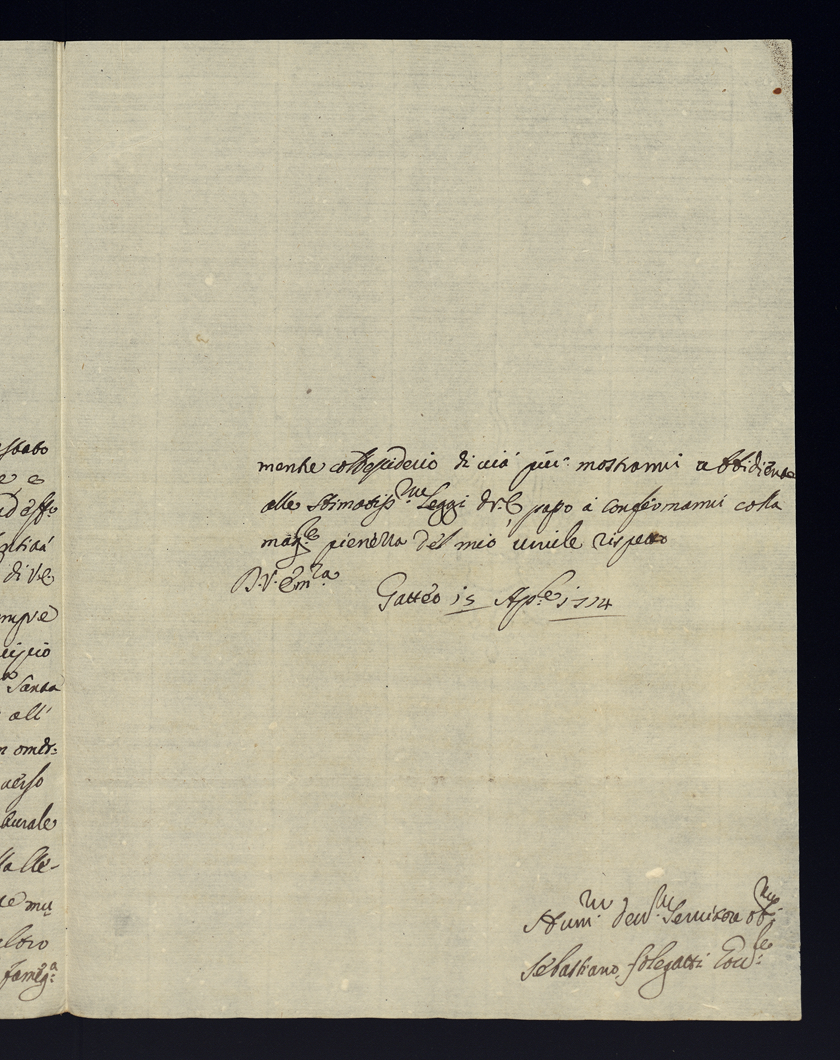 stato
e e
ad eff.o
di V.E
empre
Santa
all'
n omdr:
verso
turale
lla Ble-
ue mu
altro
famig:a
mente col desiderio di via più mostrarmi ubbidiente
alle stimatiss.me Leggi dr.E passo à confirmarmi colla
mag.e pienezza del mio umile rispetto
D. V. Em.za
Gatteo 15 Ap.le 1774
Hum.mo dev.mo Servitore ob.mo
Sebastiano Solegatti